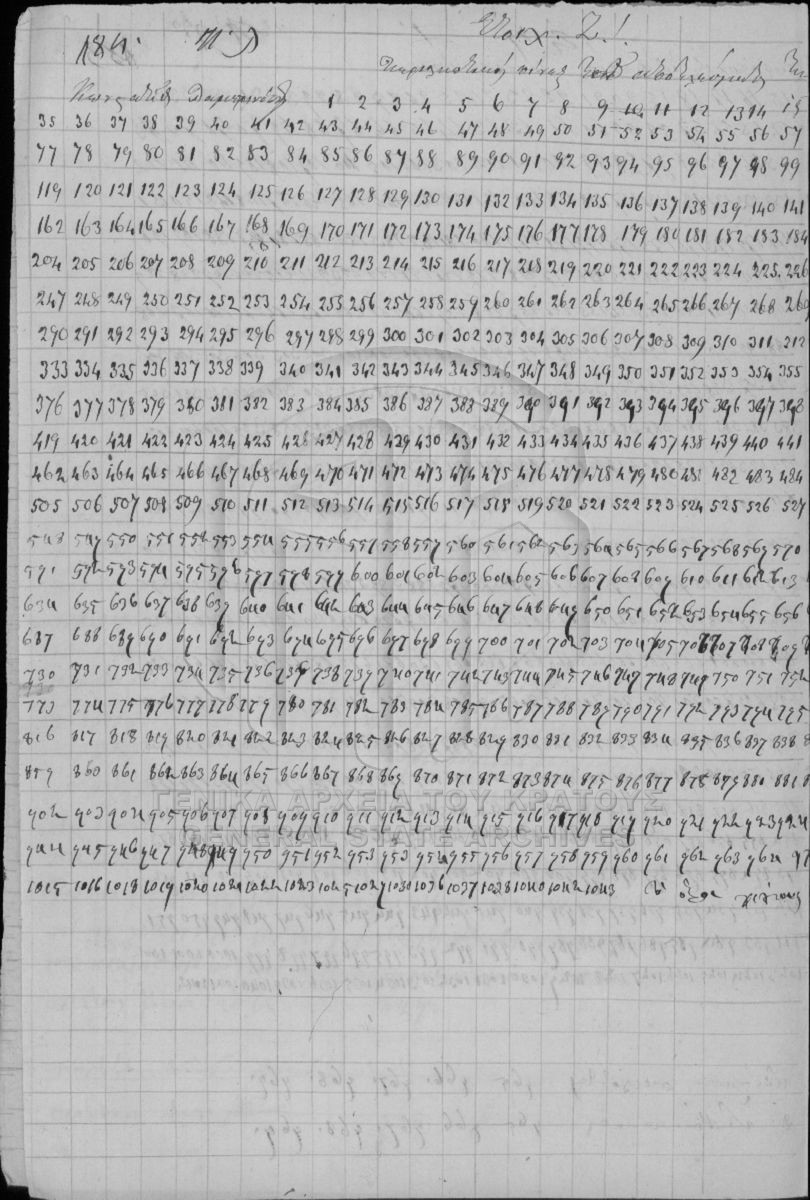 Στοιχ. Ζ!
1 2 3 4 5 6 7 8 9 10 11 12 13 14 15
35 36 37 38 39 40 41 42 43 44 45 46 47 48 49 50 51 52 53 54 55 56 57
77 78 79 80 81 82 83 84 85 86 87 88 89 90 91 92 93 94 95 96 97 98 99
119 120 121 122 123 124 125 126 127 128 129 130 131 132 133 134 135 136 137 138 139 140 141
162 163 164 165 166 167 168 169 170 171 172 173 174 175 176 177 178 179 180 181 182 183 184
204 205 206 207 208 209 210 211 212 213 214 215 216 217 218 219 220 221 222 223 224 225 226
247 248 249 250 251 252 253 254 255 256 257 258 259 260 261 262 263 264 265 266 267 268 269
290 291 292 293 294 295 296 297 298 299 300 301 302 303 304 305 306 307 308 309 310 311 312
333 334 335 336 337 338 339 340 341 342 343 344 345 346 347 348 349 350 351 352 353 354 355
376 377 378 379 380 381 382 383 384 385 386 387 388 389 390 391 392 393 394 395 396 397 398
419 420 421 422 423 424 425 426 427 428 429 430 431 432 433 434 435 436 437 438 439 440 441
462 463 464 465 466 467 468 469 470 471 472 473 474 475 476 477 478 479 480 481 482 483 484
505 506 507 508 509 510 511 512 513 514 515 516 517 518 519 520 521 522 523 524 525 526 527
548 549 550 551 552 553 554 555 556 557 558 559 560 561 562 563 564 565 566 567 568 569 570
591 592 593 594 595 596 597 598 599 600 601 602 603 604 605 606 607 608 609 610 611 612 613
634 635 636 637 638 639 640 641 642 643 644 645 646 647 648 649 650 651 652 653 654 655 656
687 688 689 690 691 692 693 694 695 696 697 698 699 700 701 702 703 704 705 706 707 708 709
730 731 732 733 734 735 736 737 738 739 740 741 742 743 744 745 746 747 748 749 750 751 752
773 774 775 776 777 778 779 780 781 782 783 784 785 786 787 788 789 790 791 792 793 794 795
816 817 818 819 820 821 822 823 824 825 826 827 828 829 830 831 832 833 834 835 836 837 838
859 860 861 862 863 864 865 866 867 868 869 870 871 872 873 874 875 876 877 878 879 880 881
902 903 904 905 906 907 908 909 910 911 912 913 914 915 916 917 918 919 920 921 922 923 924
ΓΕΝΙΚΑ ΑΡΧΕΙΑ ΤΟΥ ΚΡΑΤΟΥΣ
GENERAL STATE ARCHIVES
944 945 946 947 948 949 950 951 952 953 953 954 955 956 957 958 959 960 961 962 963 964
1015 1016 1018 1019 1020 1021 1022 1023 1025 1029 1030 1036 1037 1038 1040 1042 1043